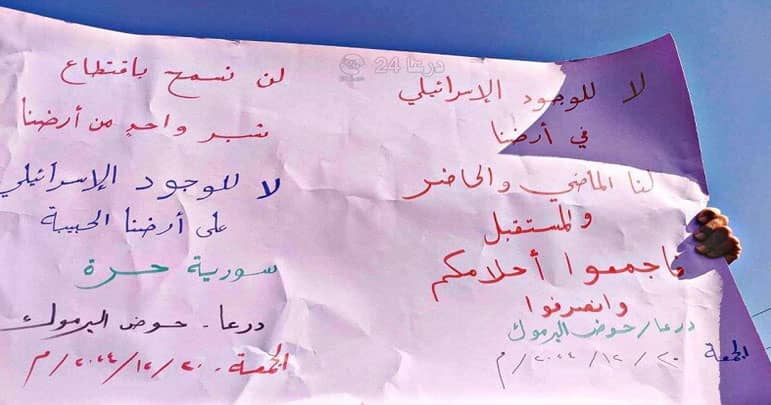 درعا 24
لا للوجود الإسرائيلي
في أرضنا
لنا الماضي والحاضر
والمستقبل
فاجمعوا أحلامكم
وانصرفوا
درعا / حوض اليرموك
الجمعة ٢٠ / ١٢ / ٢٠٢٤ / م
لن نسمح باقتطاع
شبر واحدٍ من أرضنا
لا للوجود الإسرائيلي
على أرضنا الحبيبة
سورية حرة
درعا - حوض اليرموك
الجمعة ٢٠ / ١٢ / ٢٠٢٤ / م